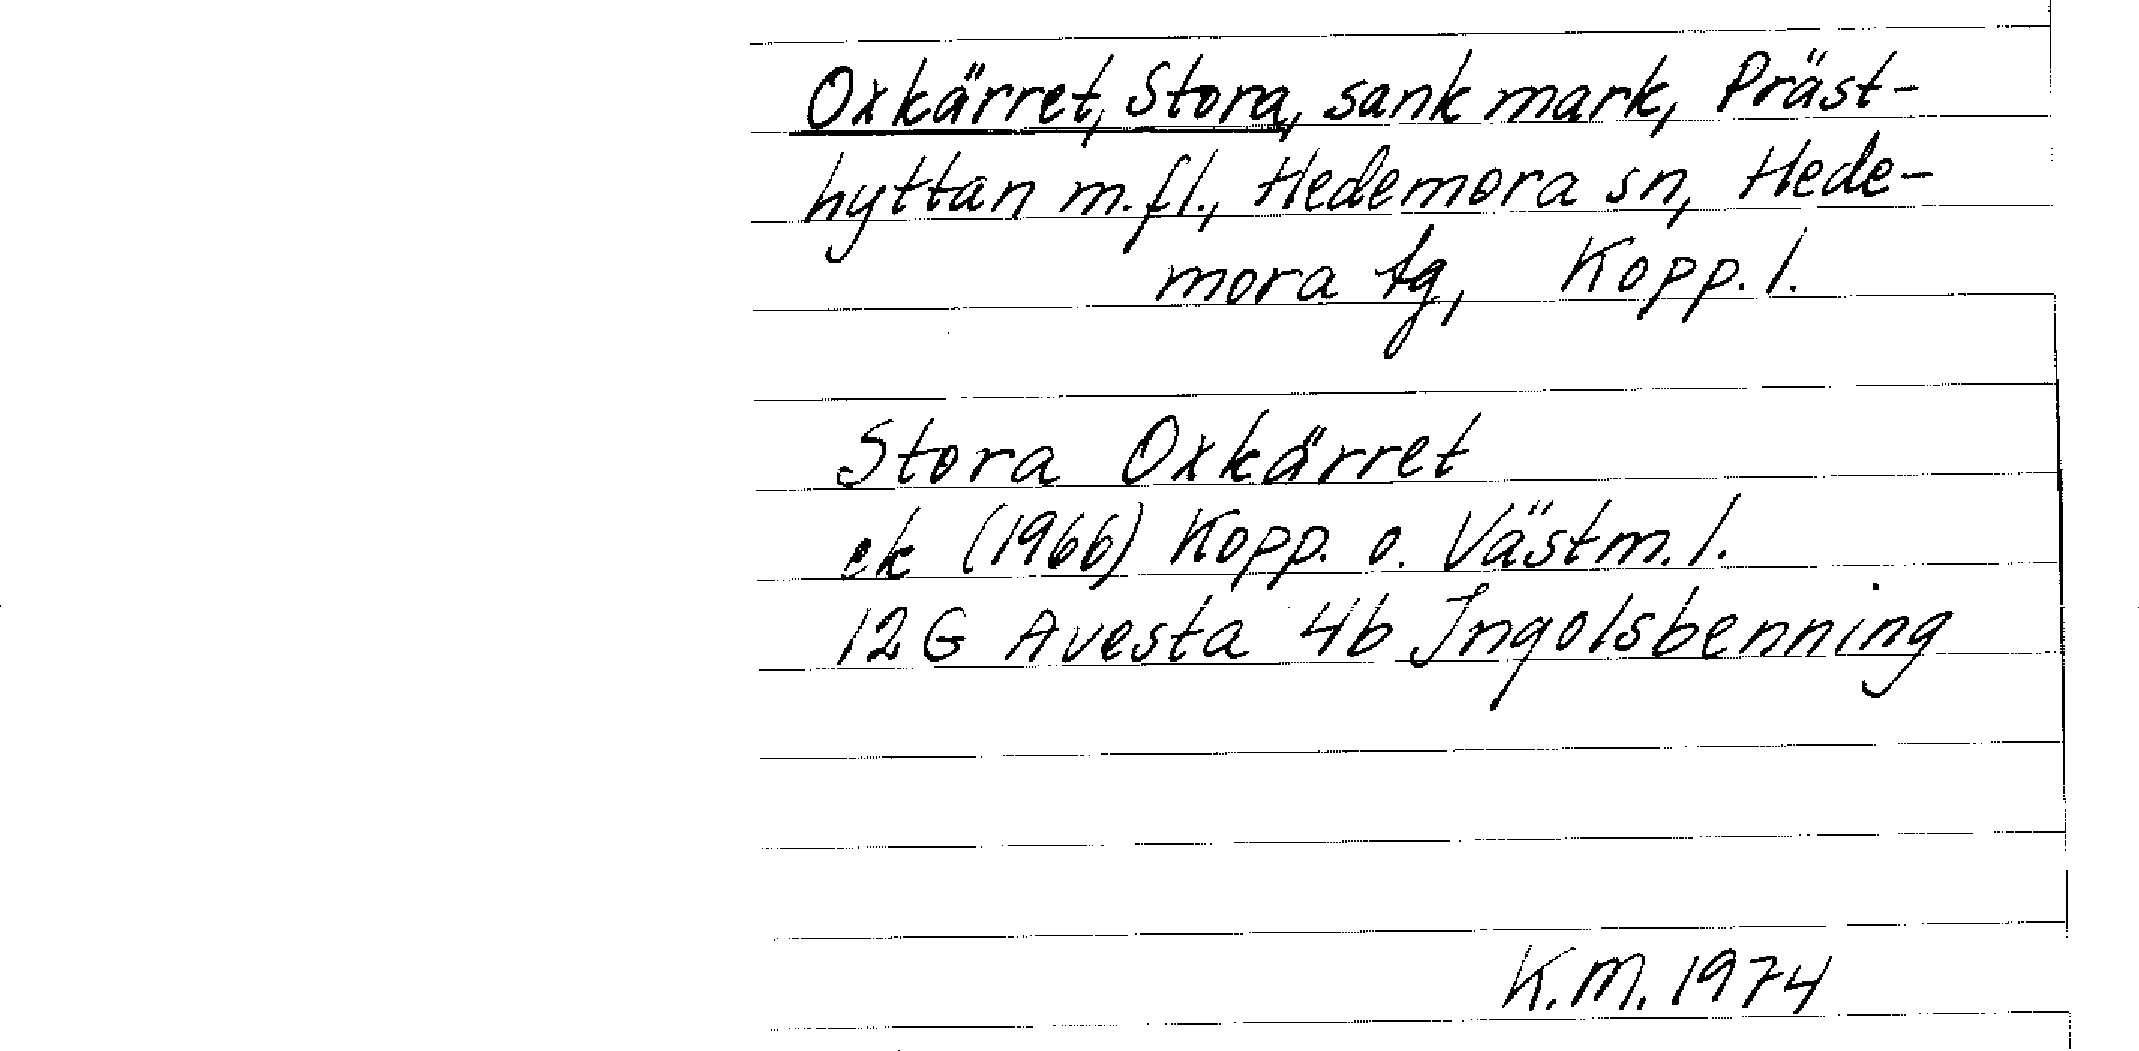 Oxkärret, Stora, sank mark, Präst-
hyttan m.fl., Hedemora sn, Hede-
mora tg, Kopp. l.
Stora Oxkärret
ek (1966) Kopp. o. Västm. l.
12G Avesta 4b Ingolsbenning
K.M. 1974